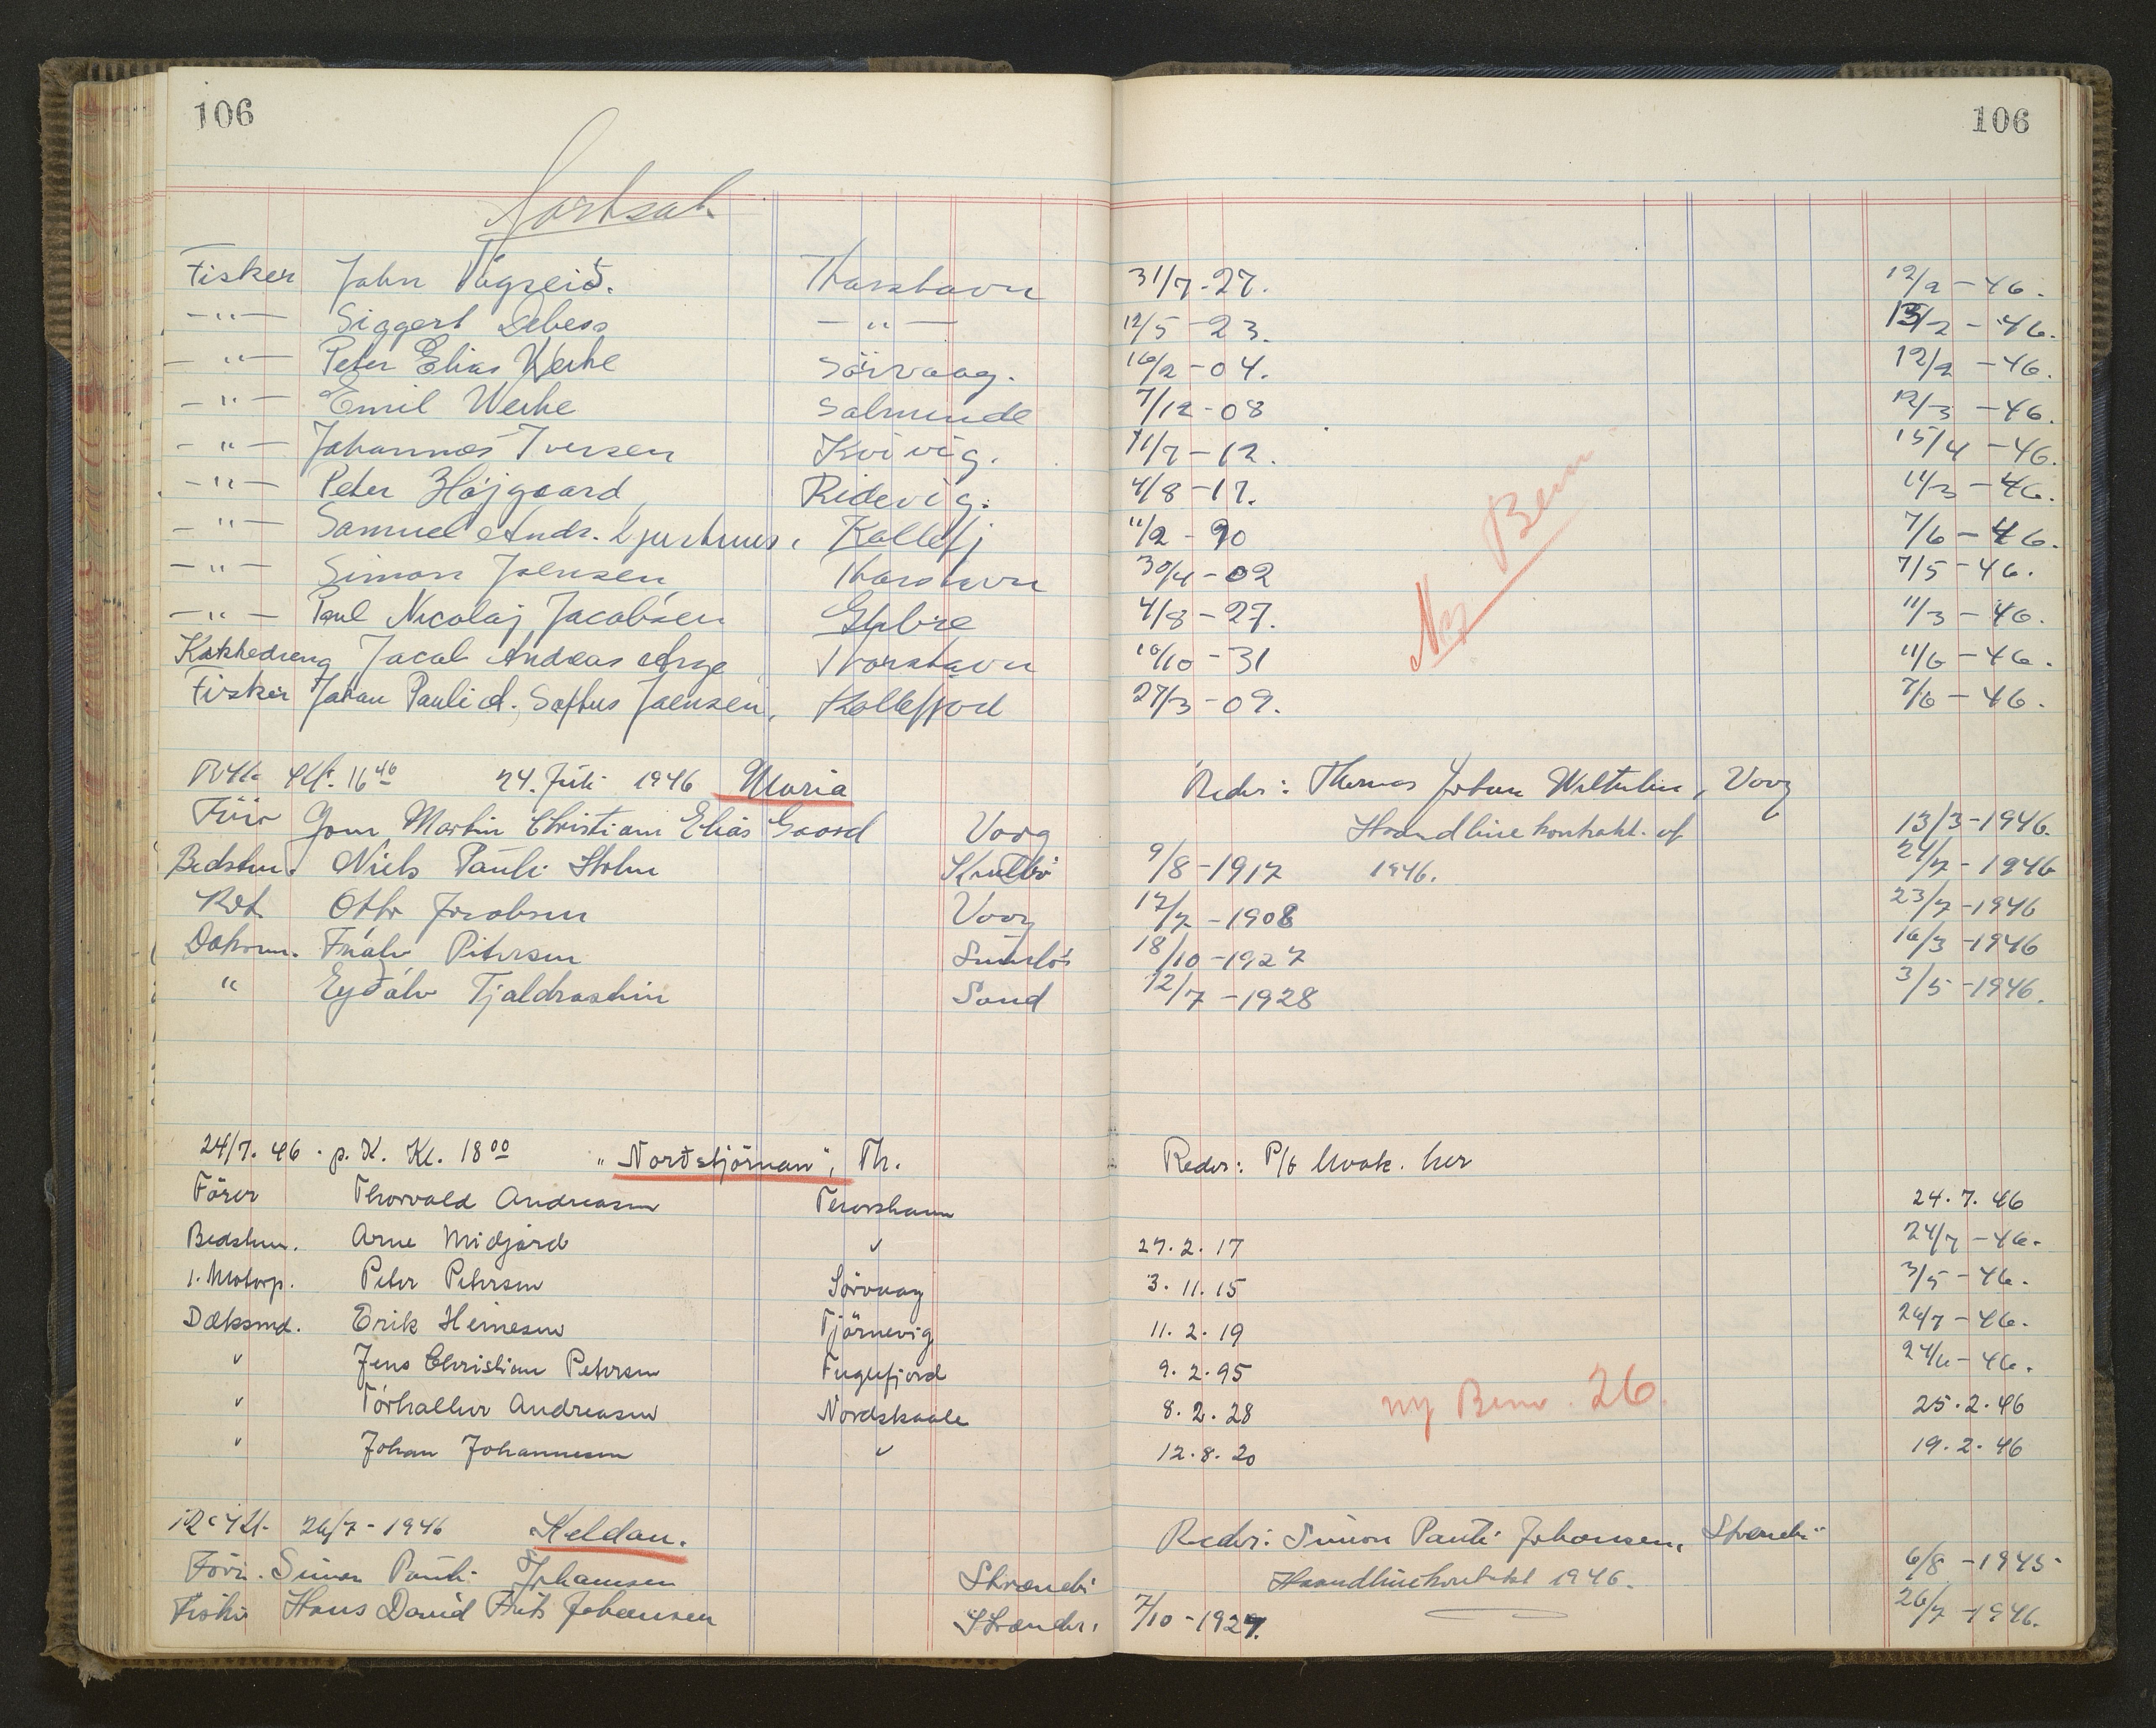 106 106
Fortsat
Fisker John Vágseið. Thorshavn 31/7-27. 12/2-46.
-"- Siggert Debess -"- 12/5-23. 13/2-46.
-"- Peter Elias Weihe Sörvaag. 16/2-04. 12/2-46.
-"- Emil Weihe Solmunde 7/12-08 12/3-46.
-"- Johannes Iversen Kvivig. 11/7-12. 15/4-46.
-"- Peter Højgaard, Ridevig. 4/8-17. 11/3-46.
-"- Samuel Andr. Kollefj 11/2-90 7/6-46.
-"- Simon Joensen, Thorshavn 30/4-02 7/5-46.
-"- Poul Nicolaj Jacobsen 4/8-27. 11/3-46.
Kokkedreng Jacob Andreas Arge, Thorshavn 10/10-31 11/6-46.
Fisker Johan Pauli d. Soffus Joensen, Kollefjord 27/3-09. 7/6-46.
Ny Bem
Kl. 16 40 24. Juli 1946 Maria Reder: Thomas Johan Vaag
Förer Martin Christian Elias Gaard Vaag Haandlinekontrakt af 13/3-1946.
Bedstm. Niels Pauli Holm 9/8-1917 1946. 24/7-1946
Kok Otto Jacobsen Vaag 17/7-1908 23/7-1946
Dæksm. Petersen 18/10-1927 16/3-1946
" Eyðálv Tjaldrastein Sand 12/7-1928 3/5-1946.
24/7. 46. p. K. Kl. 18 00 "Norðstjörnan", Th. Reder: P/f her
Förer Thorvald Andreasen Thorshavn 24.7.46
Bedstm. Arne Midjord " 27.2.17 24/7-46.
1. Motorp. Peter Petersen Sörvaag 3.11.15 3/5-46.
Dæksmd. Erik Heinesen Tjörnevig 11.2.19 24/7-46.
" Jens Christian Petersen Fuglefjord 9.2.95 24/6-46.
" Tórhallur Andreasen Nordskaale 8.2.28 ny Bem. 26. 25.2.46
" Johan Johannesen " 12.8.20 19.2.46
26/7-1946 Keldan. Reder: Simon Pauli Johansen, Strændr
Förer. Simon Pauli Johansen Strændr Haandlinekontrakt 1946. 6/8-1945
Fisker Hans David Frits Johansen Strændr. 7/10-1927. 26/7-1946.